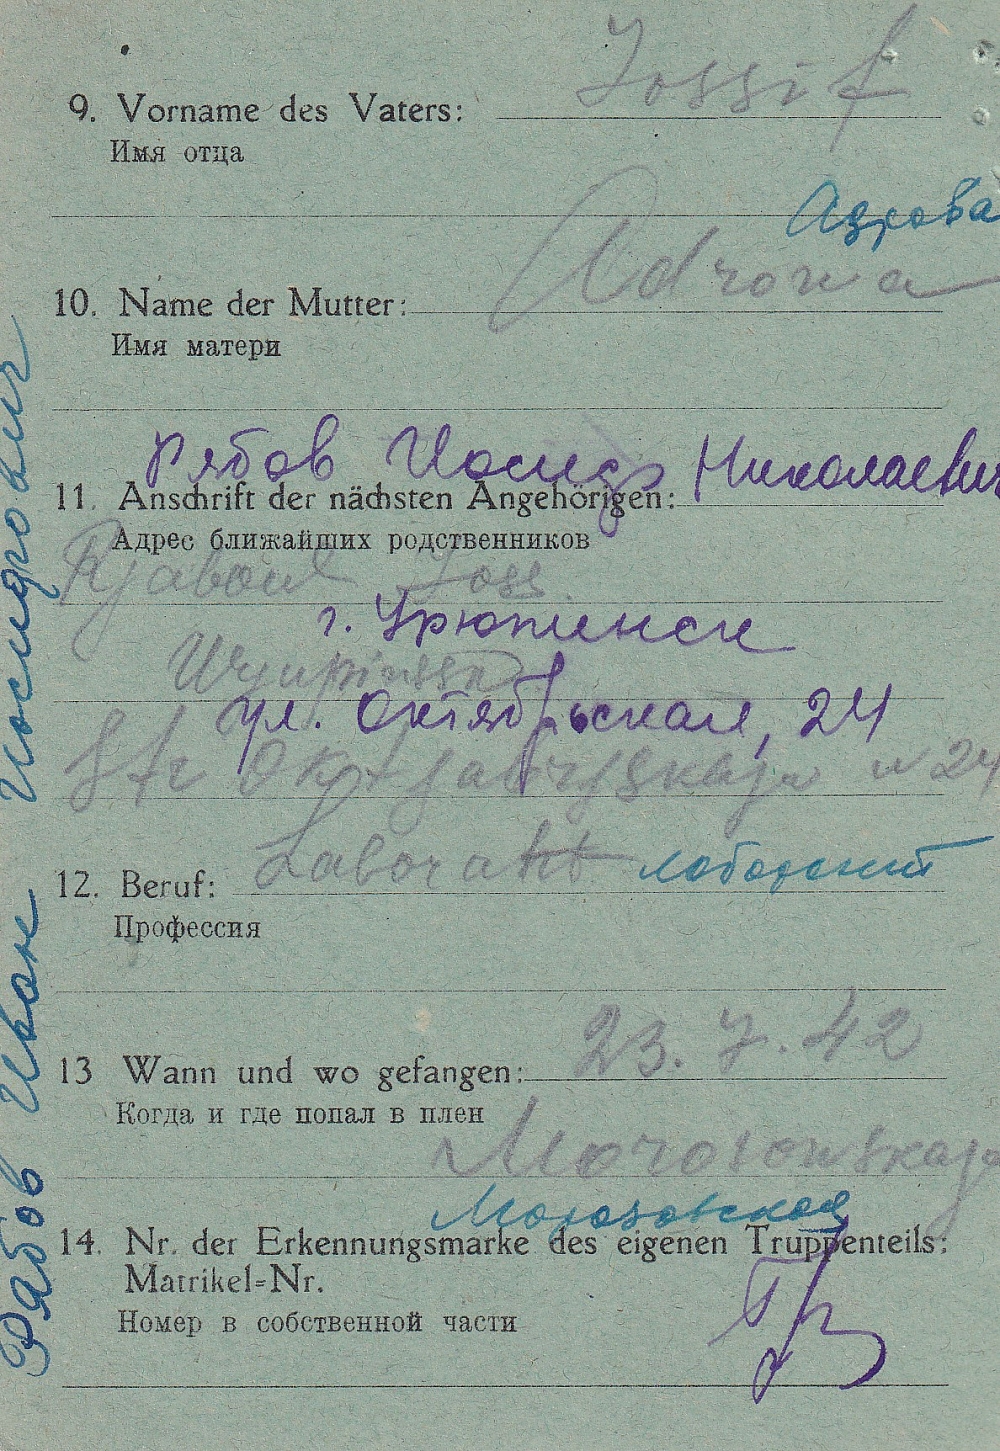 9. Vorname des Vaters: Jossif
Имя отца
Адрова
10. Name der Mutter: Adrowa
Имя матери
Рябов Иосиф Николаевич
11. Anschrift der nächsten Angehörigen:
Адрес ближайших родственников
Rjabow Joss.
г. Урюпинск
ул. Октябрьская, 24
Str Oktjabrjskaja N 24
12. Beruf: Laborant лаборант
Профессия
13 Wann und wo gefangen: 23.7.42
Когда и где попал в плен
Morosowskaja
Морозовская
14. Nr. der Erkennungsmarke des eigenen Truppenteils:
Matrikel=Nr.
Номер в собственной части
Рябов Иван Иосифович